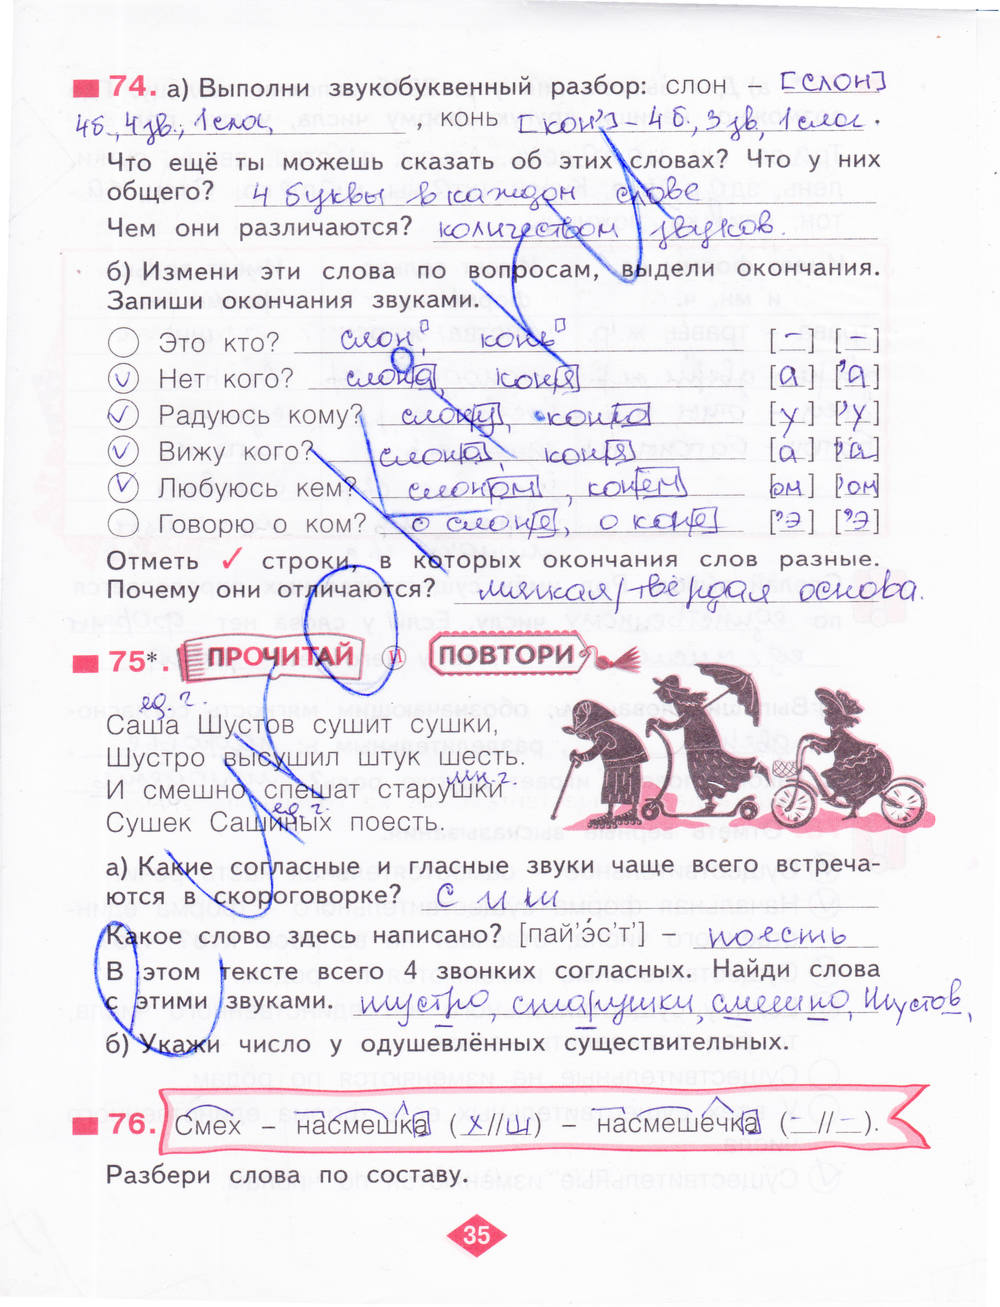 74. а) Выполни звукобуквенный разбор: слон – [слон]
4б., 4зв., 1слог, конь [кон'] - 4б, 3зв, 1слог.
Что ещё ты можешь сказать об этих словах? Что у них
общего? 4 буквы в каждом слове
Чем они различаются? количеством звуков.
б) Измени эти слова по вопросам, выдели окончания.
Запиши окончания звуками.
Это кто? слон, конь [–] [–]
Нет кого? слона, коня [а] ['а]
Радуюсь кому? слону, коню [у] ['у]
Вижу кого? слона, коня [а] ['а]
Любуюсь кем? слоном, конём [ом] ['ом]
Говорю о ком? о слоне, о коне ['э] ['э]
Отметь ✓ строки, в которых окончания слов разные.
Почему они отличаются? мягкая/твёрдая основа.
75*. ПРОЧИТАЙ И ПОВТОРИ
ед.ч.
Саша Шустов сушит сушки,
Шустро высушил штук шесть.
мн.ч
И смешно спешат старушки
ед.ч.
Сушек Сашиных поесть.
а) Какие согласные и гласные звуки чаще всего встреча-
ются в скороговорке? С и ш
Какое слово здесь написано? [пай'эс'т'] – поесть
В этом тексте всего 4 звонких согласных. Найди слова
с этими звуками. шустро, старушки, смешно, Шустов,
б) Укажи число у одушевлённых существительных.
76. Смех – насмешка (х//ш) – насмешечка (–//–).
Разбери слова по составу.
35